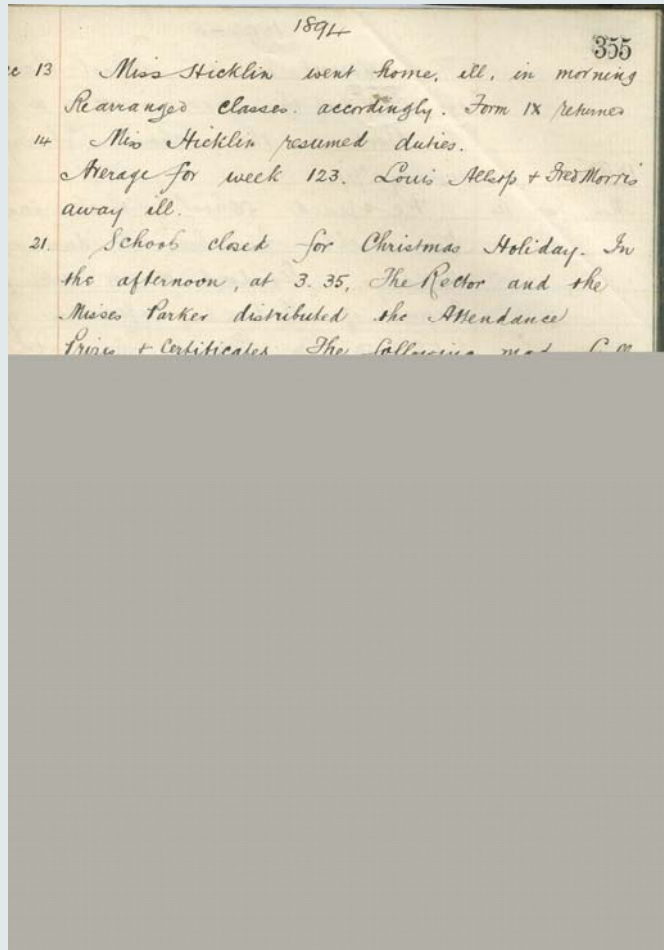 1894
355
13 Miss Hicklin went home, ill, in morning
Rearranged classes. accordingly. Form IX returned
14 Miss Hicklin resumed duties.
Average for week 123. Louis Allsop + Fred Morris
away ill.
21. School closed for Christmas Holiday. In
the afternoon, at 3.35, The Rector and the
Misses Parker distributed the Attendance
Prizes + Certificates. The following